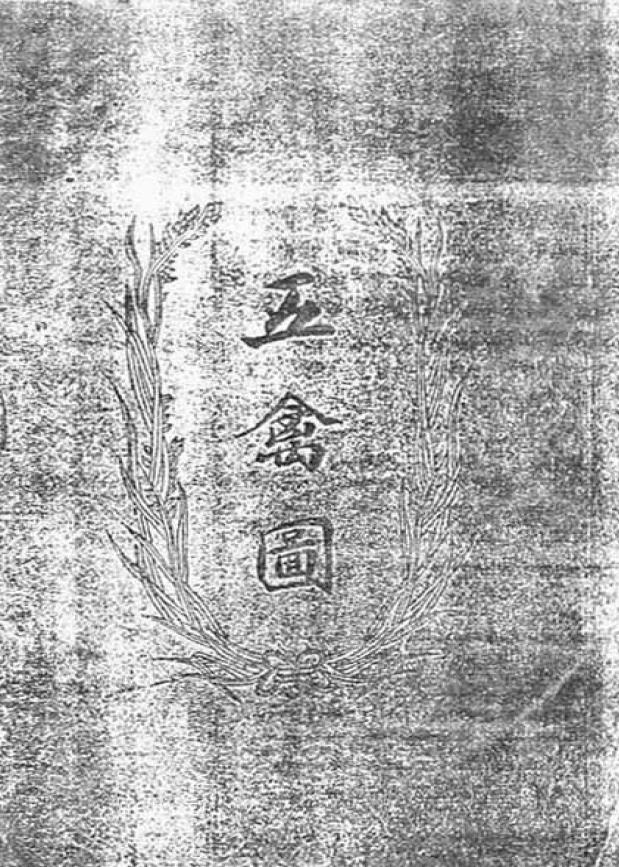 五禽圖